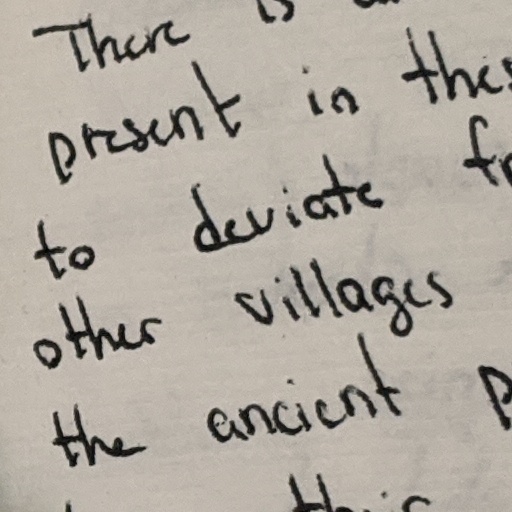 There is
present in
to deviate
other villages
the ancient